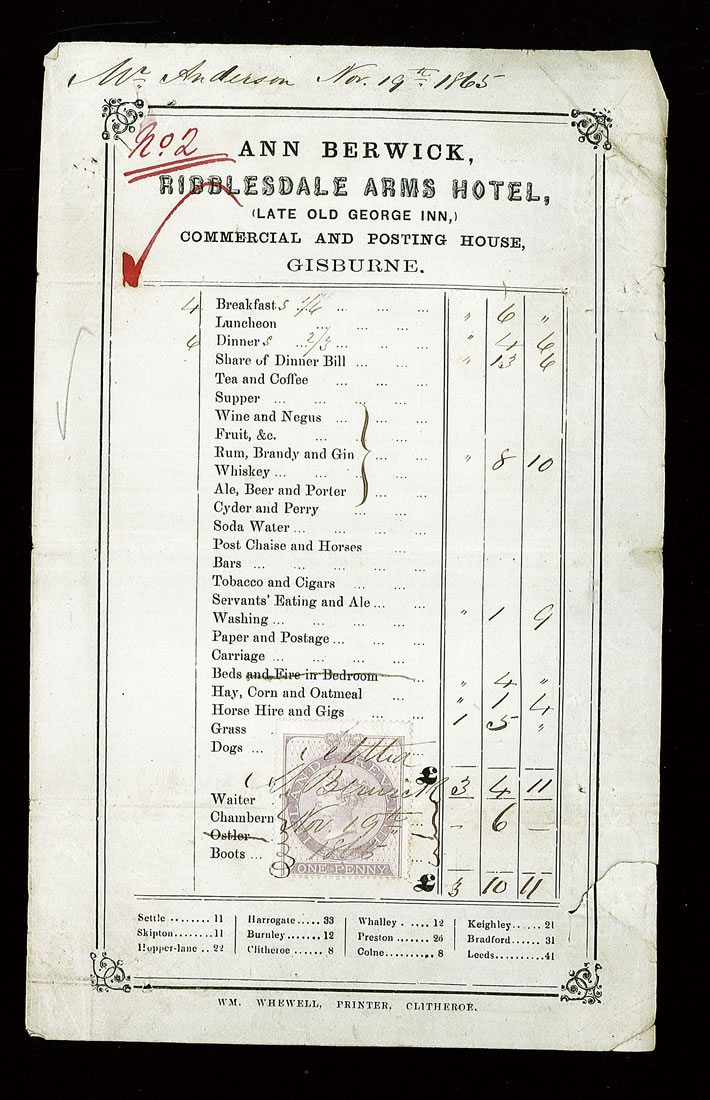 Mr Anderson Nov. 19th 1865
No. 2
ANN BERWICK,
RIBBLESDALE ARMS HOTEL,
(LATE OLD GEORGE INN,)
COMMERCIAL AND POSTING HOUSE,
GISBURNE.
4 Breakfasts 1/6 ... ... ... " 6 "
Luncheon ... ... ...
6 Dinners ... 2/3 ... ... ... " 4 6
Share of Dinner Bill ... ... " 13 6
Tea and Coffee ... ... ...
Supper ... ... ... ...
Wine and Negus ... ... ...
Fruit, &c. ... ... ...
Rum, Brandy and Gin ... ... " 8 10
Whiskey ... ... ...
Ale, Beer and Porter ... ...
Cyder and Perry ... ...
Soda Water ... ... ... ...
Post Chaise and Horses ...
Bars ... ... ... ... ...
Tobacco and Cigars ... ...
Servants' Eating and Ale ... ...
Washing ... ... ... ... " 1 9
Paper and Postage ... ... ...
Carriage ... ... ... ...
Beds and Fire in Bedroom ... " 4 "
Hay, Corn and Oatmeal ... " 1 4
Horse Hire and Gigs ... ... 1 5 "
Grass
Dogs ...
Settled
A. Berwick
£ 3 4 11
Waiter
Chamberm
Nov 19th
– 6 –
Ostler
1865
Boots ...
ONE PENNY
£ 3 10 11
Settle ........ 11 Harrogate ..... 33 Whalley ..... 12 Keighley ...... 21
Skipton ........ 11 Burnley ....... 12 Preston ....... 26 Bradford ...... 31
Hopper-lane .. 22 Clitheroe ...... 8 Colne .......... 8 Leeds .......... 41
WM. WHEWELL, PRINTER, CLITHEROE.